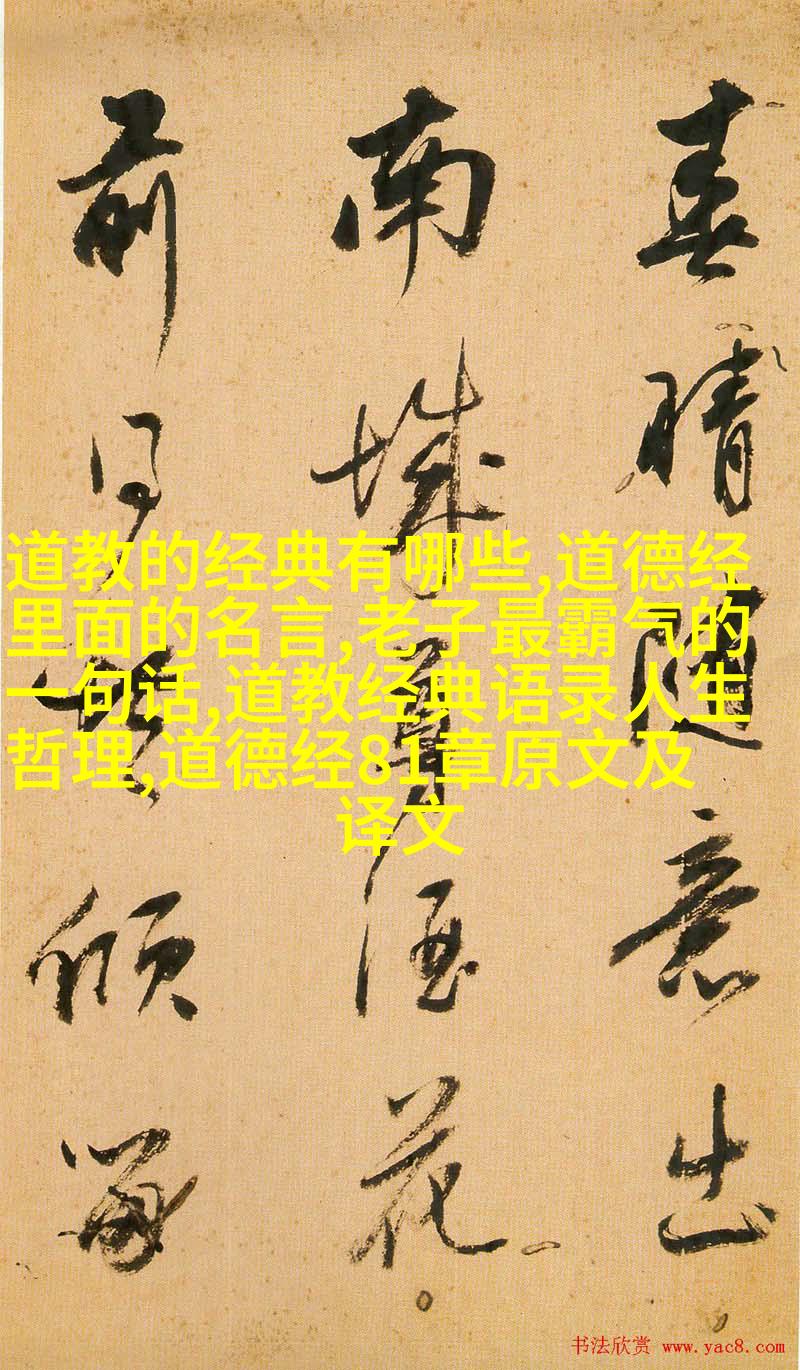 道教的经典有哪些,道德经
里面的名言,老子最霸气的
一句话,道教经典语录人生
哲理,道德经81章原文及
译文
春晴随意出
南城尊酒花
前同傾留
书法欣赏 www.yac8.com